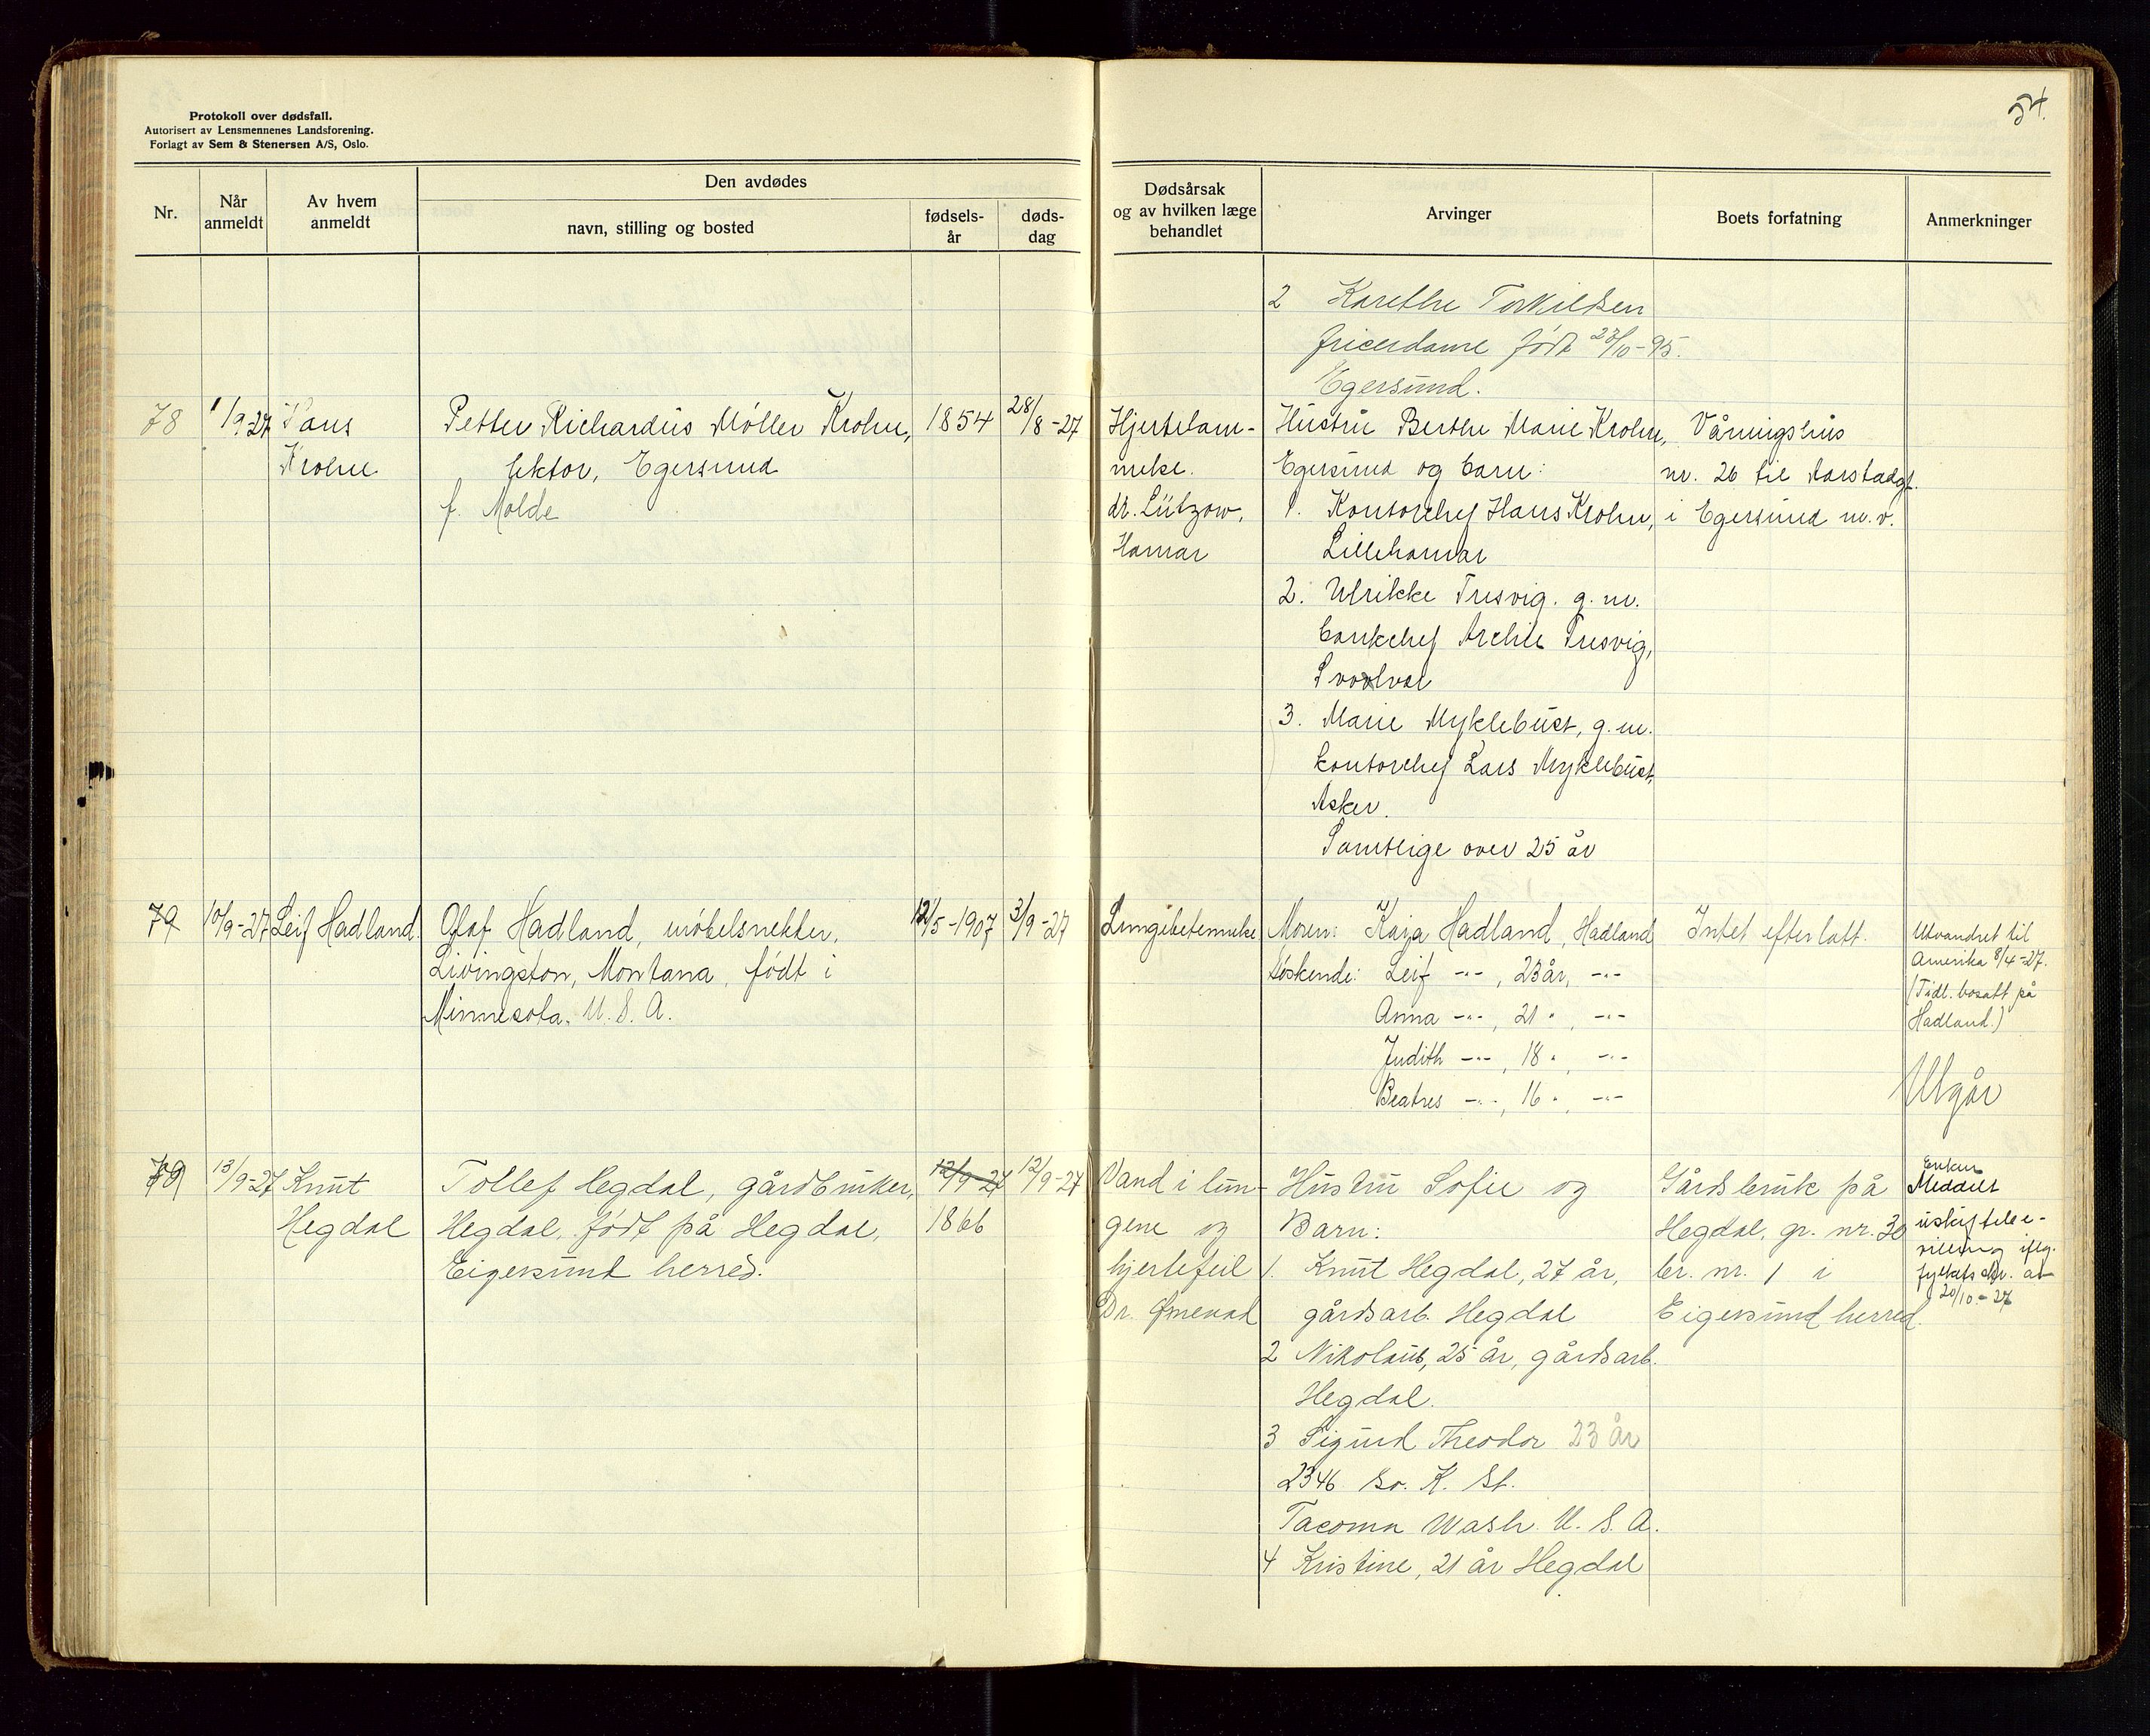 Protokoll over dødsfall.
Autorisert av Lensmennenes Landsforening.
Forlagt av Sem & Stenersen A/S, Oslo.
54.
Nr.
Når anmeldt
Av hvem anmeldt
Den avdødes
navn, stilling og bosted
fødsels-
år
døds-
dag
Dødsårsak
og av hvilken læge
behandlet
Arvinger
Boets forfatning
Anmerkninger
2 Karethe Torkildsen
fricerdame født 23/10-95.
Egersund.
78
1/9 27
Hans
Krohn
Petter Richardus Møller Krohn,
lektor, Egersund
f. Molde
1854
28/8-27
Hjertelam-
melse.
dr. Lützow,
Hamar
Hustru Berthe Marie Krohn,
Egersund og barn:
1. Kontorchef Hans Krohn,
Lillehamar
2. Ulrikke Tresvig. g. m.
bankchef Archie Tresvig,
Svolvær
3. Marie Myklebust, g. m.
kontorchef Lars Myklebust,
Asker.
Samtlige over 25 år
Våningshus
nr. 26 til Aarstadgt.
i Egersund m. v.
79
10/9-27
Leif Hadland.
Olaf Hadland, møbelsnekker,
Livingston, Montana, født i
Minnesota. U. S. A.
12/5-1907
3/9-27
Lungebetennelse
Moren: Kaja Hadland, Hadland
Søskende: Leif -"-, 23 år, -"-
Anna -"-, 21 ", -"-
Judith -"-, 18 ", -"-
Beatres -"-, 16 ", -"-
Intet efterlatt.
Utvandret til
Amerika 8/4-27.
(Tidl. bosatt på
Hadland.)
Utgår
79
13/9-27
Knut
Hegdal
Tollef Hegdal, gårdbruker,
Hegdal, født på Hegdal,
Eigersund herred.
12/9 27
1866
12/9-27
Vand i lun-
gene og
hjertefeil
Dr.
Hustru Sofie og
Barn:
1. Knut Hegdal, 27 år,
gårdsarb. Hegdal
2 Nikolaus, 25 år, gårdsarb.
Hegdal.
3 Sigurd Theodor 23 år
2346 So. K. St.
Tacoma Wash. U. S. A.
4 Kristine, 21 år Hegdal
Gårdsbruk på
Hegdal, gr. nr. 30
br. nr. 1 i
Eigersund herred.
Enken
Meddelt
uskiftebe-
villing iflg.
av
20/10-27